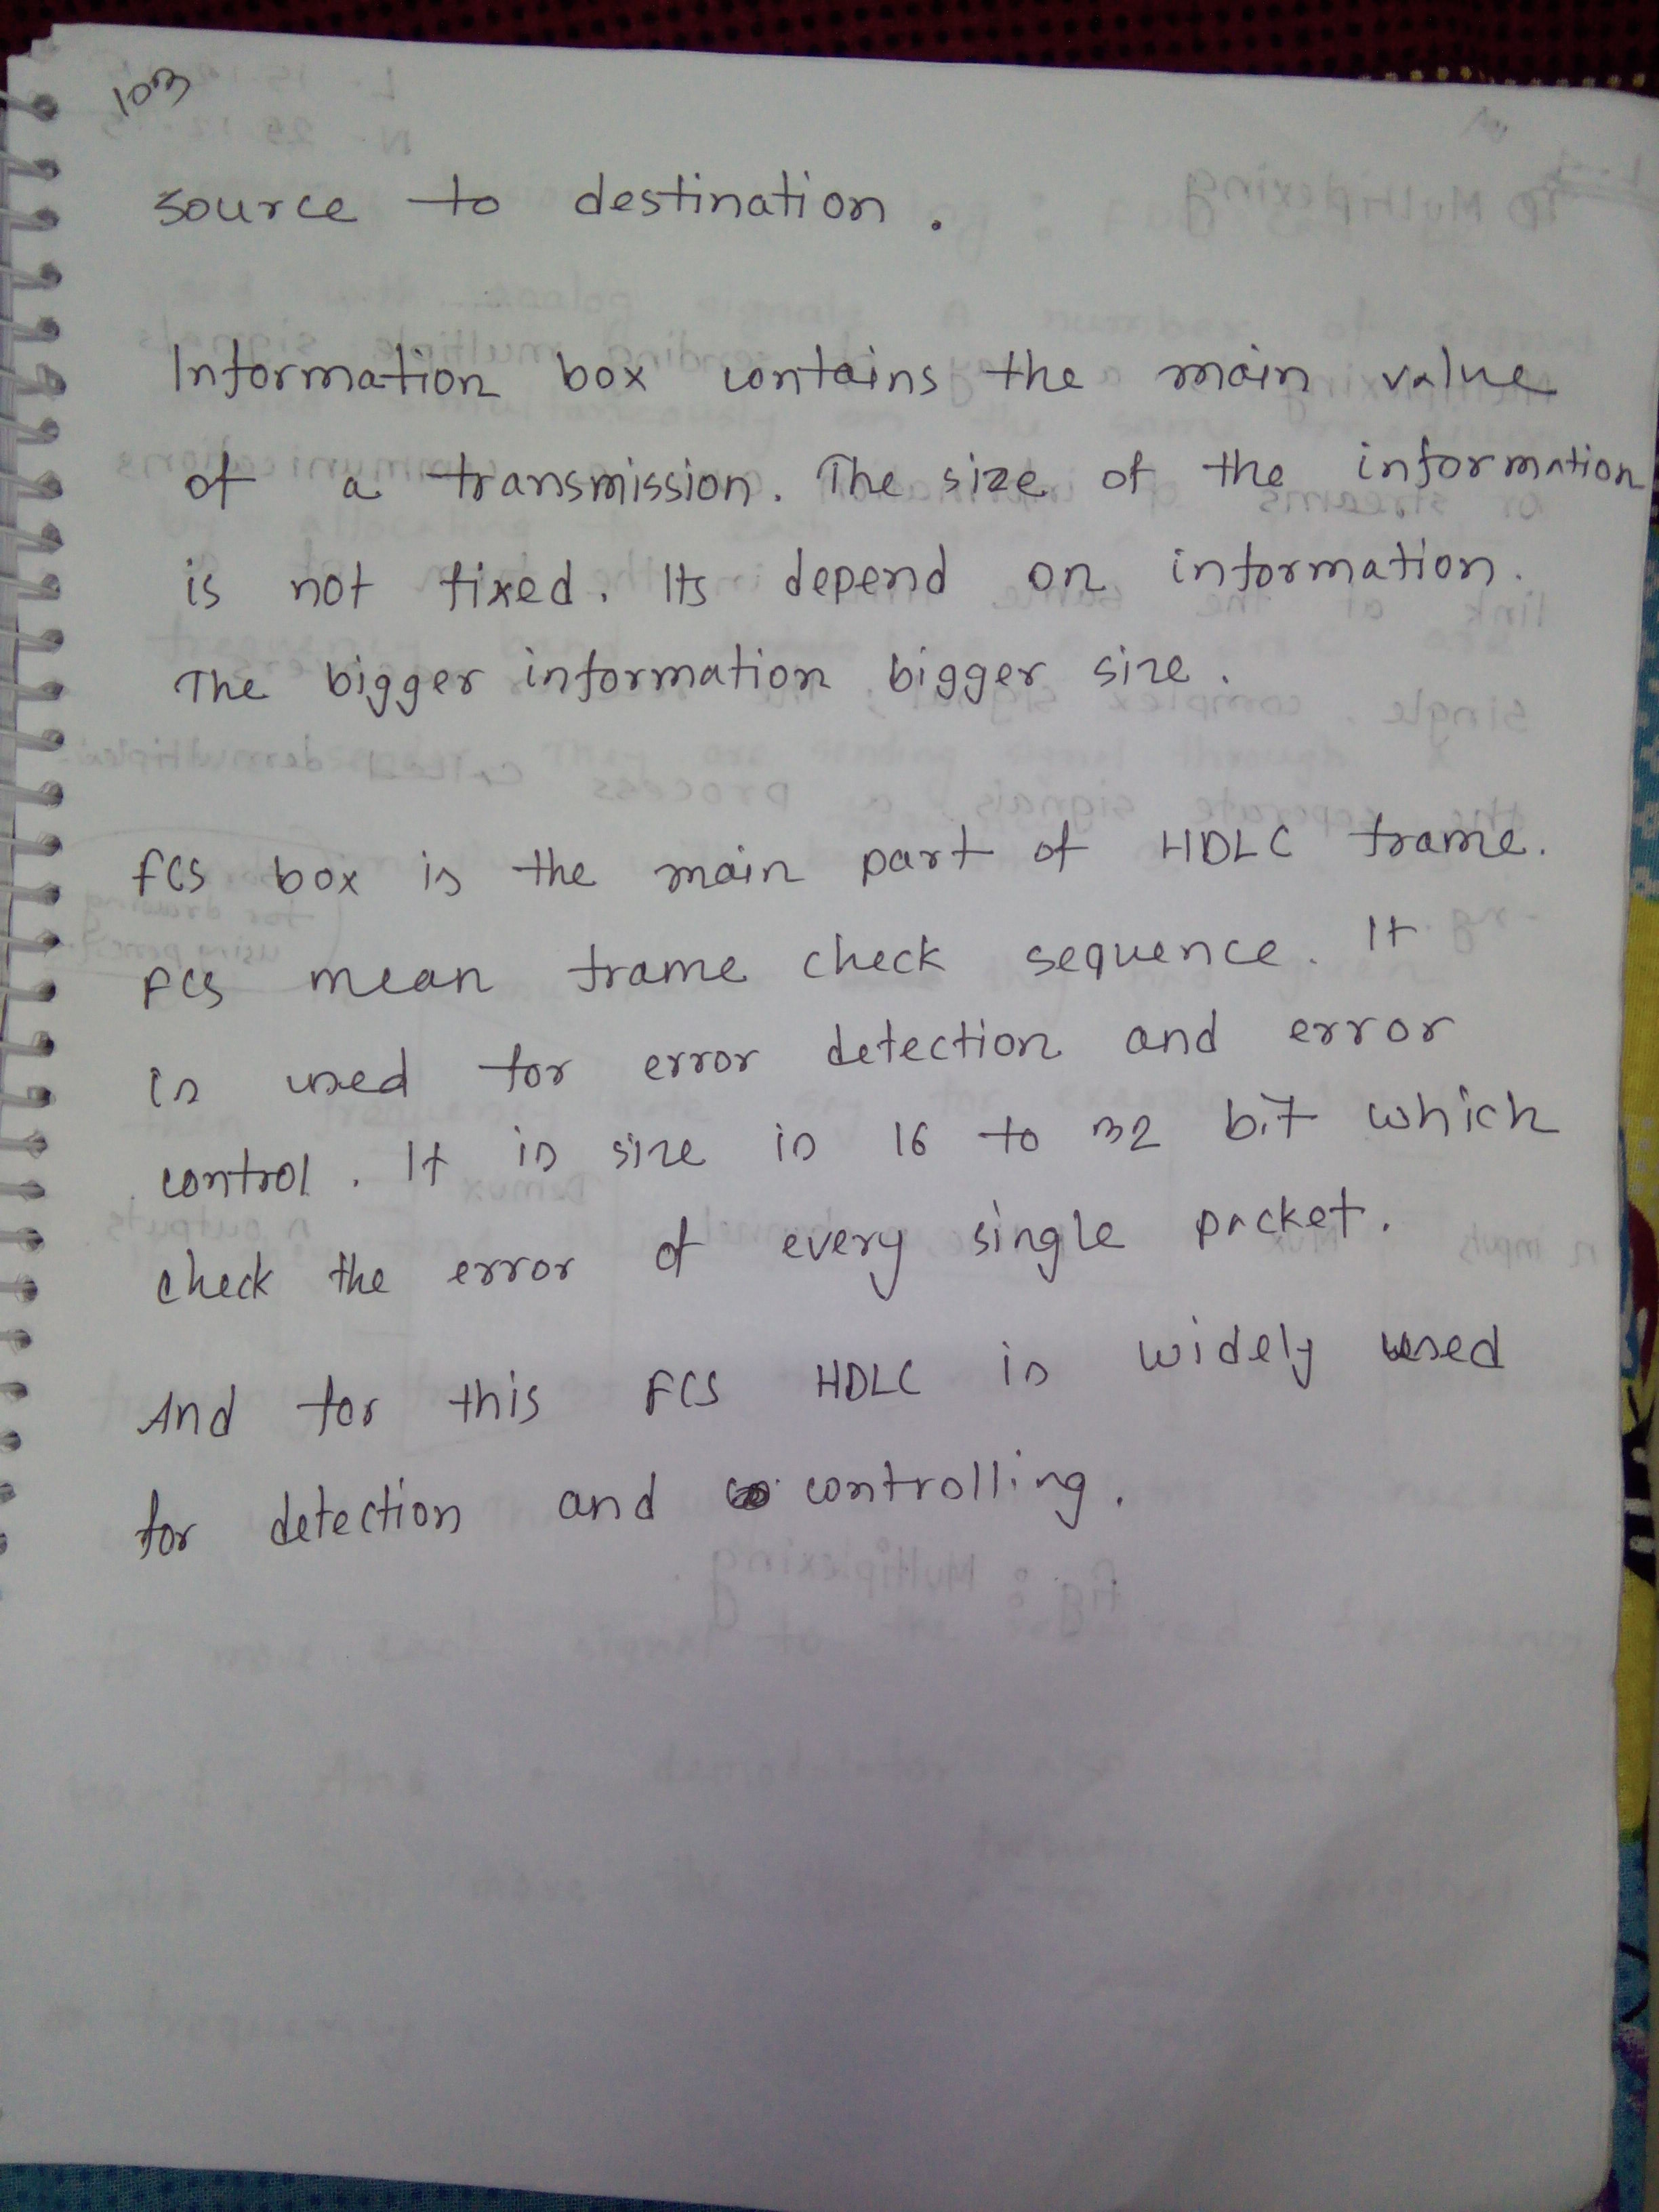 103
source to destination.
Information box contains the main value
of a transmission. The size of the information
is not fixed. Its depend on information.
The bigger information bigger size.
FCS box is the main part of HDLC frame.
FCS mean frame check sequence. It
is used for error detection and error
control. It is size is 16 to 32 bit which
check the error of every single packet.
And for this FCS HDLC is widely used
for detection and controlling.